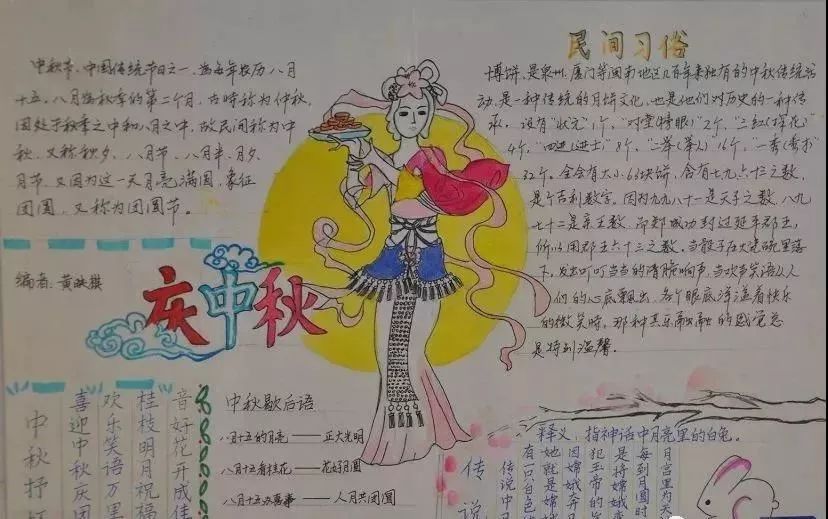 中秋节，中国传统节日之一，为每年农历八月
十五，八月为秋季的第二个月，古时称为仲秋，
因处于秋季之中和八月之中，故民间称为中
秋，又称秋夕、八月节、八月半、月夕、
月节，又因为这一天月亮满圆，象征
团圆，又称为团圆节。
编者：黄映祺
庆中秋
民间习俗
博饼，是泉州、厦门等闽南地区几百年来独有的中秋传统活
动，是一种传统的月饼文化，也是他们对历史的一种传
承。设有"状元"1个，"对堂(榜眼)"2个，"三红(探花)
4个，"四进(进士)"8个，"二举(举人)16个，一秀(秀才)
32个。全会有大小63块饼，含有七九六十三之数，
是个吉利数字。因为九九八十一是天子之数，八九
七十二是亲王数，而郑成功封过延平郡王，
所以用郡王六十三之数。当骰子在大瓷碗里落
下，发出叮叮当当的清脆响声，当欢声笑语从人
们的心底飘出，各个眼底洋溢着快乐
的微笑时，那种其乐融融的感觉总
是特别温馨。
中秋歇后语
八月十五的月亮——正大光明
八月十五看桂花——花好月圆
八月十五办喜事——人月共团圆
中秋抒
喜迎中秋庆团
欢乐笑语万里
桂枝明月祝福
音好花开成佳
释义：指神话中月亮里的白兔。
传说
月宫里为天
每到月圆时
是将嫦娥变
犯玉帝的
因嫦娥奔月
她就是嫦
有一只白色
传说中月